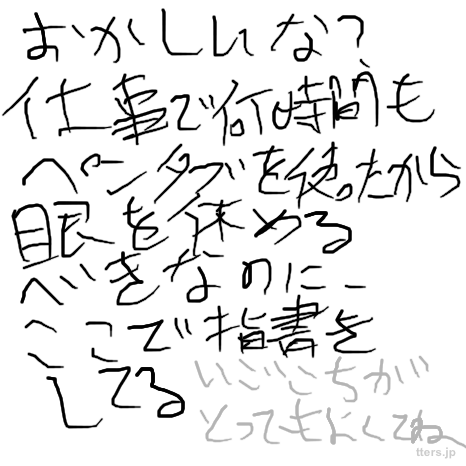 おかしいな？
仕事で何時間も
ペンタブを使ったから
眼を休める
べきなのに、
ここで指書を
してる
いごこちが
とってもよくてね
tters.jp